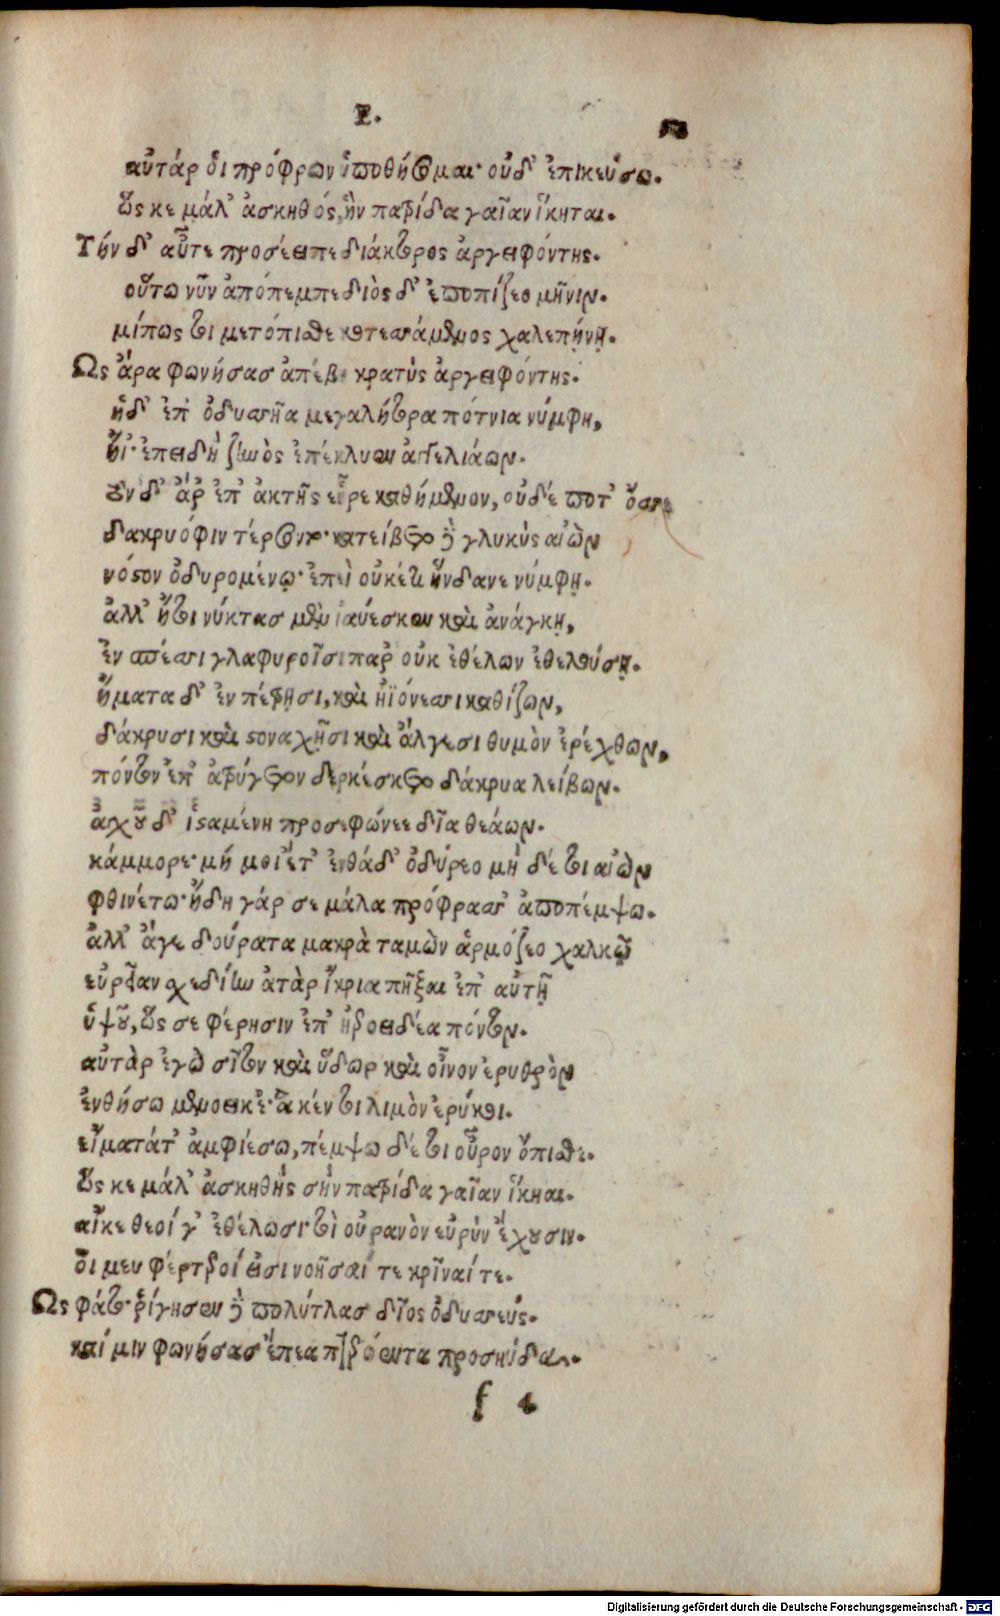 Ε.
αὐτάρ ὁι πρόφρων ὑποθήσομαι· οὐδ' ἐπικεύσω.
ὥς κε μάλ' ἀσκηθὸς, ἣν πατρίδα γαῖαν ἵκηται.
Τήν δ' αὖτε προσέειπε διάκτορος ἀργειφόντης.
οὕτω νῦν ἀπόπεμπε διὸς δ' ἐποπίζεο μῆνιν.
μίπως τοι μετόπισθε κοτεσσάμενος χαλεπήνῃ.
Ως ἄρα φωνήσασ ἀπέβη κρατὺς ἀργειφόντης.
ἡδ' ἐπ' ὀδυσσῆα μεγαλήτορα πότνια νύμφη,
ἤϊ· ἐπειδὴ ζηνὸς ἐπέκλυεν ἀγγελιάων.
τὸν δ' ἄρ' ἐπ' ἀκτῆς εὗρε καθήμενον, οὐδέ ποτ' ὄσσε
δακρυόφιν τέρσοντο· κατείβετο δὲ γλυκὺς αἰὼν
νόστον ὀδυρομένῳ· ἐπεὶ οὐκέτι ἥνδανε νύμφη.
ἀλλ' ἤτοι νύκτασ μὲν ἰαύεσκεν καὶ ἀνάγκῃ,
ἐν σπέσσι γλαφυροῖσι παρ' οὐκ ἐθέλων ἐθελούσῃ.
ἤματα δ' ἐν πέτρῃσι, καὶ ἠϊόνεσσι καθίζων,
δάκρυσι καὶ στοναχῇσι καὶ ἄλγεσι θυμὸν ἐρέχθων,
πόντον ἐπ' ἀτρύγετον δερκέσκετο δάκρυα λείβων.
ἀγχοῦ δ' ἱσταμένη προσεφώνεε δῖα θεάων.
κάμμορε· μή μοι ἔτ' ἐνθάδ' ὀδύρεο μὴ δέ τοι αἰὼν
φθινέτω· ἤδη γάρ σε μάλα πρόφρασσ' ἀποπέμψω.
ἀλλ' ἄγε δούρατα μακρὰ ταμὼν ἁρμόζεο χαλκῷ
εὐρεῖαν σχεδίην ἀτὰρ ἴκρια πῆξαι ἐπ' αὐτῇ
ὑψοῦ, ὥς σε φέρησιν ἐπ' ἠεροειδέα πόντον.
αὐτὰρ ἐγὼ σῖτον καὶ ὕδωρ καὶ οἶνον ἐρυθρὸν
ἐνθήσω μενοεικέ· ἅ κέν τοι λιμὸν ἐρύκοι.
εἵματάτ' ἀμφιέσω, πέμψω δέ τοι οὖρον ὄπισθε.
ὥς κε μάλ' ἀσκηθὴς σὴν πατρίδα γαῖαν ἵκηαι.
αἴκε θεοί γ' ἐθέλωσι τοὶ οὐρανὸν εὐρὺν ἔχουσιν.
ὅι μευ φέρτεροί εἰσι νοῆσαί τε κρῖναί τε.
Ως φάτο· ῥίγησεν δὲ πολύτλασ δῖος ὀδυσσεύς.
καί μιν φωνήσασ ἔπεα πτερόεντα προσηύδα.
f 4
Digitalisierung gefördert durch die Deutsche Forschungsgemeinschaft - DFG